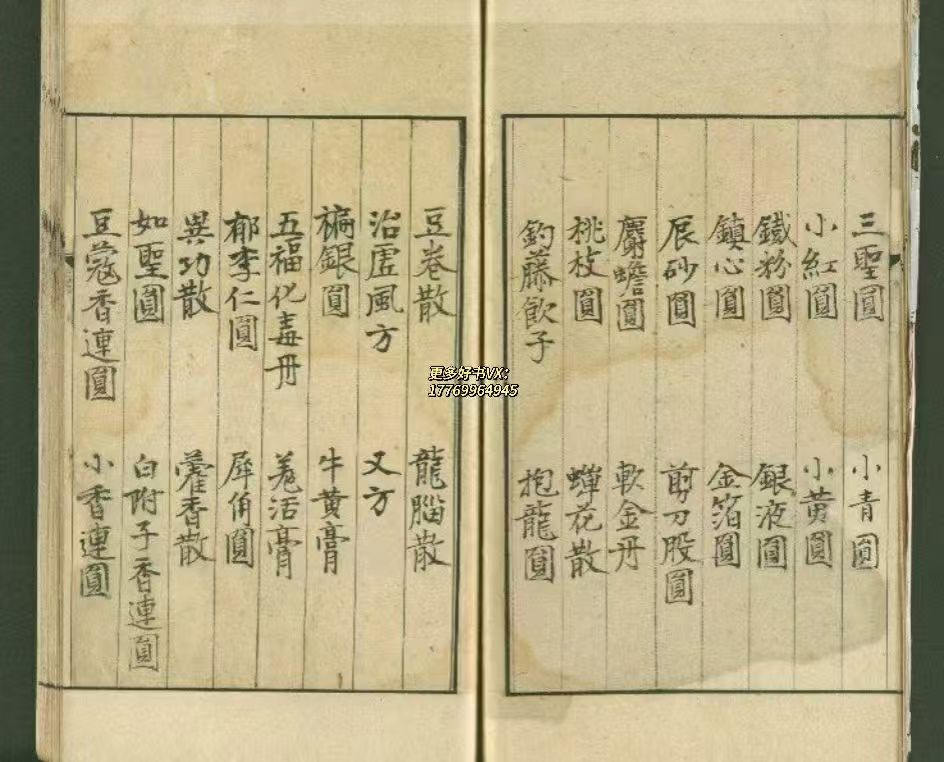 三聖圓 小青圓
小紅圓 小黄圓
鐵粉圓 銀液圓
鎮心圓 金箔圓
辰砂圓 剪刀股圓
麝蟾圓 軟金丹
桃枝圓 蟬花散
釣藤飲子 抱龍圓
豆卷散 龍腦散
治虛風方 又方
褊銀圓 牛黄膏
五福化毒丹 羗活膏
郁李仁圓 犀角圓
異功散 藿香散
如聖圓 白附子香連圓
豆蔻香連圓 小香連圓
更多好书VX:
17769964945